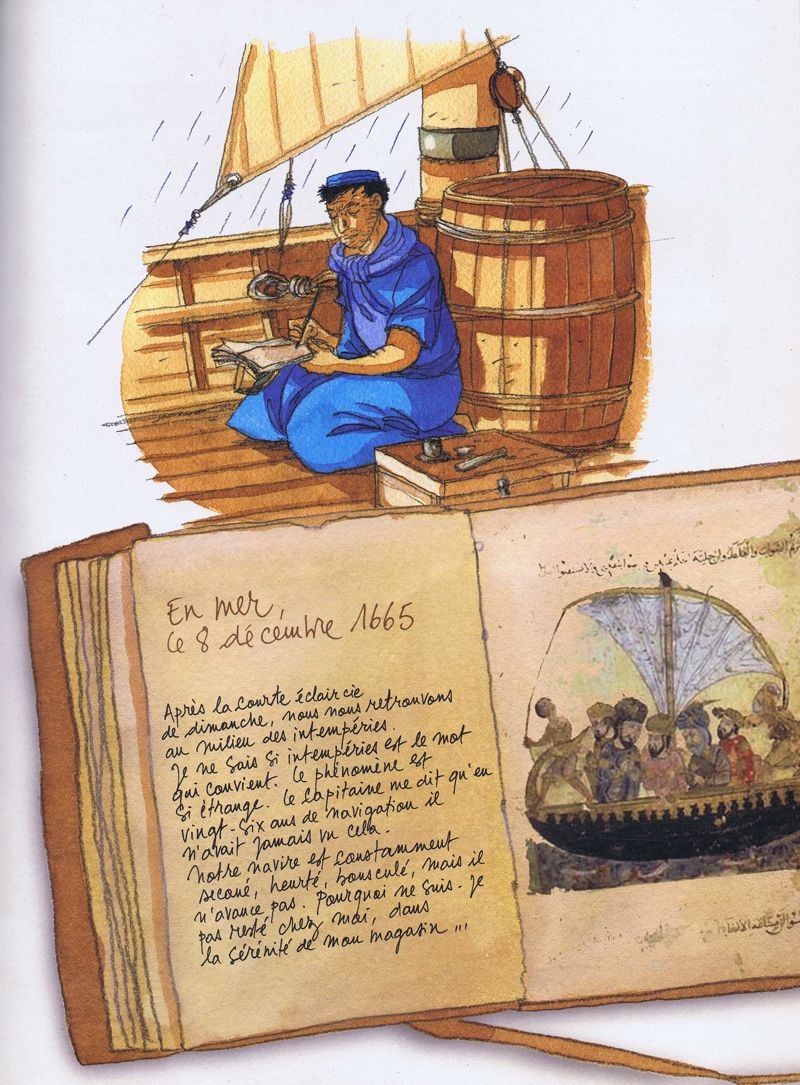 En mer,
le 8 décembre 1665
Après la courte éclaircie
de dimanche, nous nous retrouvons
au milieu des intempéries.
Je ne sais si intempéries est le mot
qui convient. Le phénomène est
si étrange. Le capitaine me dit qu'en
vingt-six ans de navigation il
n'avait jamais vu cela.
Notre navire est constamment
secoué, heurté, bousculé, mais il
n'avance pas. Pourquoi ne suis-je
pas resté chez moi, dans
la sérénité de mon magasin...